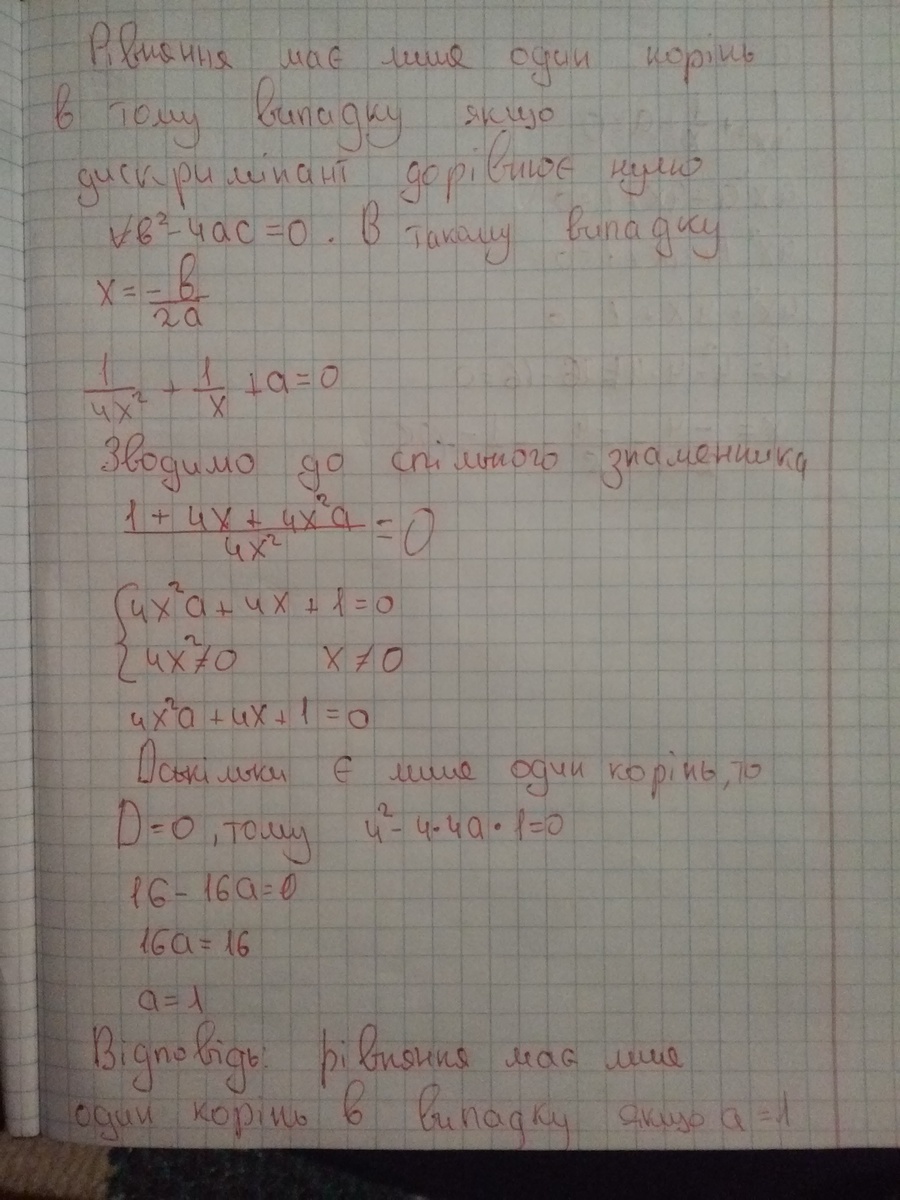 Рівняння має лише один корінь
в тому випадку якщо
дискримінант дорівнює нулю
√в²-4ас=0. В такому випадку
x = -в/2а
1/4x² + 1/x + а = 0
Зводимо до спільного знаменника
1 + 4x + 4x²а / 4x² = 0
{4x²а + 4x + 1 = 0
{4x² ≠ 0 x ≠ 0
4x²а + 4x + 1 = 0
Оскільки є лише один корінь, то
D = 0, тому 4² - 4·4а·1=0
16 - 16а = 0
16а = 16
а = 1
Відповідь: рівняння має лише
один корінь в випадку якщо а = 1